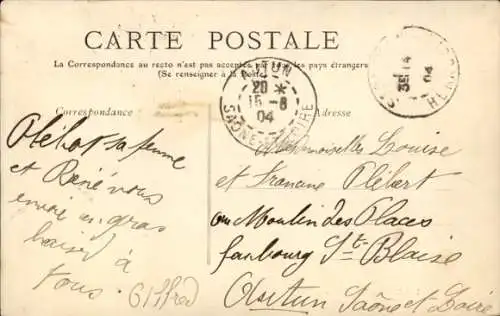 CARTE POSTALE
La Correspondance au recto n'est pas acceptée par tous les pays étrangers
(Se renseigner à la Poste)
AUTUN
20 *
15 - 8
04
SAONE-ET-LOIRE
14
04
Correspondance
Adresse
Plébert sa femme
et René vous
envoie un gros
baiser à
tous.
Mesdemoiselles Louise
et Francine Plébert
au Moulin des Places
faubourg St-Blaise
Autun Saône et Loire